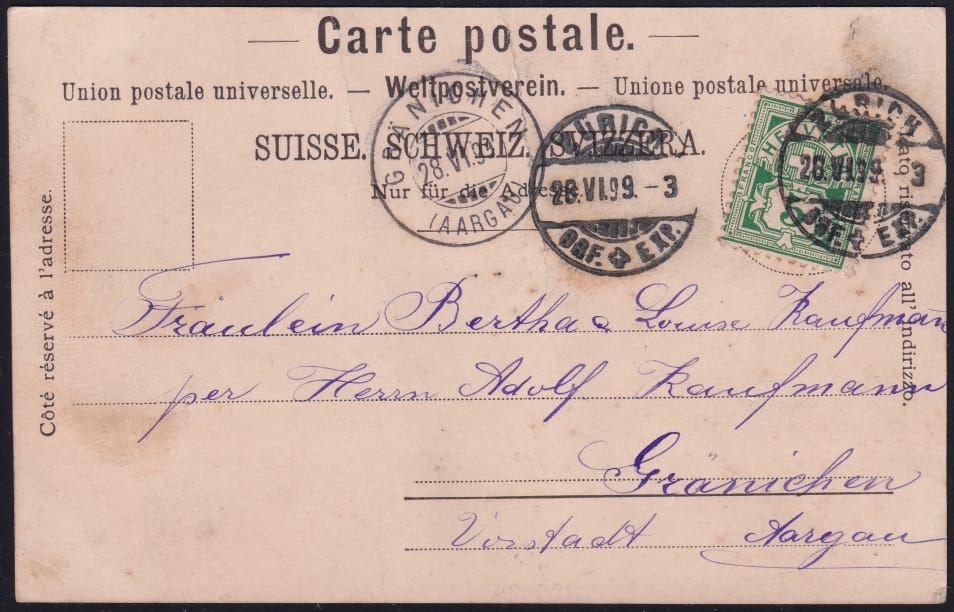 Carte postale.
Union postale universelle. — Weltpostverein. — Unione postale universale.
SUISSE. SCHWEIZ. SVIZZERA.
Nur für die Adresse.
GRÄNICHEN
28.VI.99
(AARGAU)
ZÜRICH
28.VI.99.-3
BRF. EXP.
FRANCO HELVETIA
ZÜRICH
28.VI.99.-3
BRF. EXP.
Côté réservé à l'adresse.
Fräulein Bertha & Louise Kaufmann
per Herrn Adolf Kaufmann
Gränichen
Vorstadt Aargau
all'indirizzo.